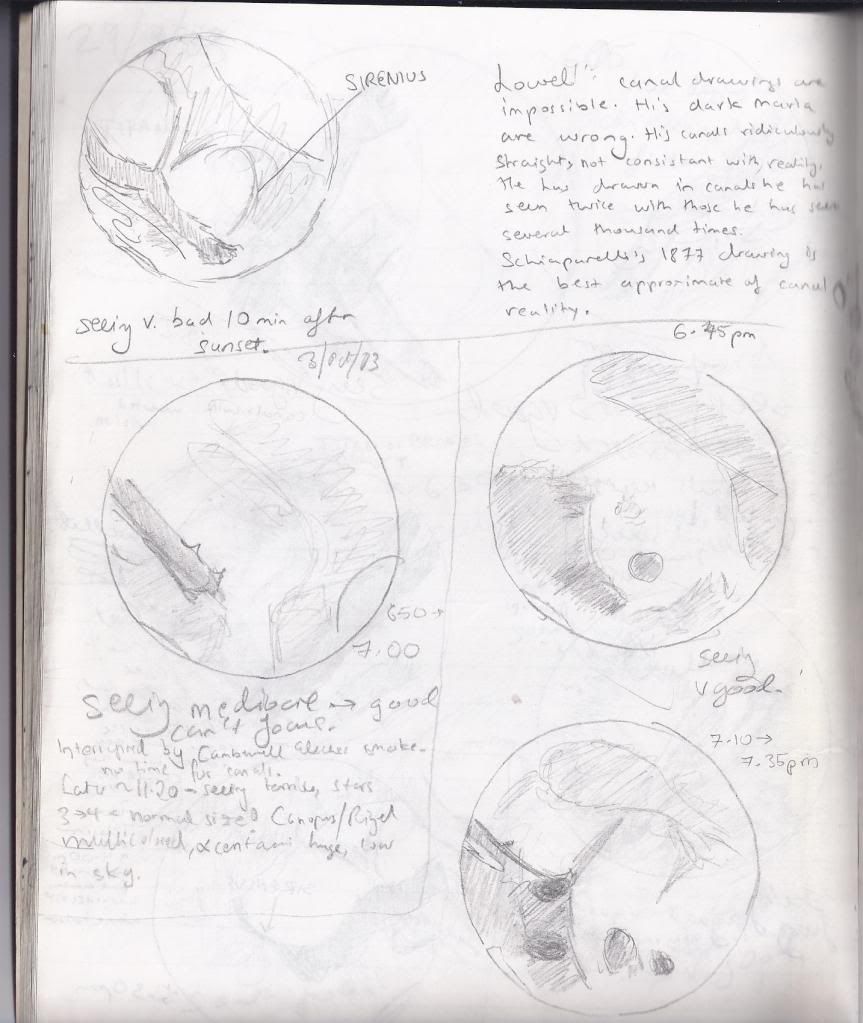 SIRENIUS
Lowell's canal drawings are
impossible. His dark maria
are wrong. His canals ridiculously
straight, not consistant with reality.
He has drawn in canals he has
seen twice with those he has seen
several thousand times.
Schiaparelli's 1877 drawing is
the best approximate of canal
reality.
seeing v. bad 10 min after
sunset.
6.45pm
3/Oct/
650→
7.00
seeing
v good.
seeing mediocre → good
can't focus.
Interrupted by smoke.
no time for canals.
Later ~ 11.20 - seeing terrible, stars
3→4 × normal size. Canopus/Rigel
multicoloured, α centauri huge, low
in sky.
7.10→
7.35pm